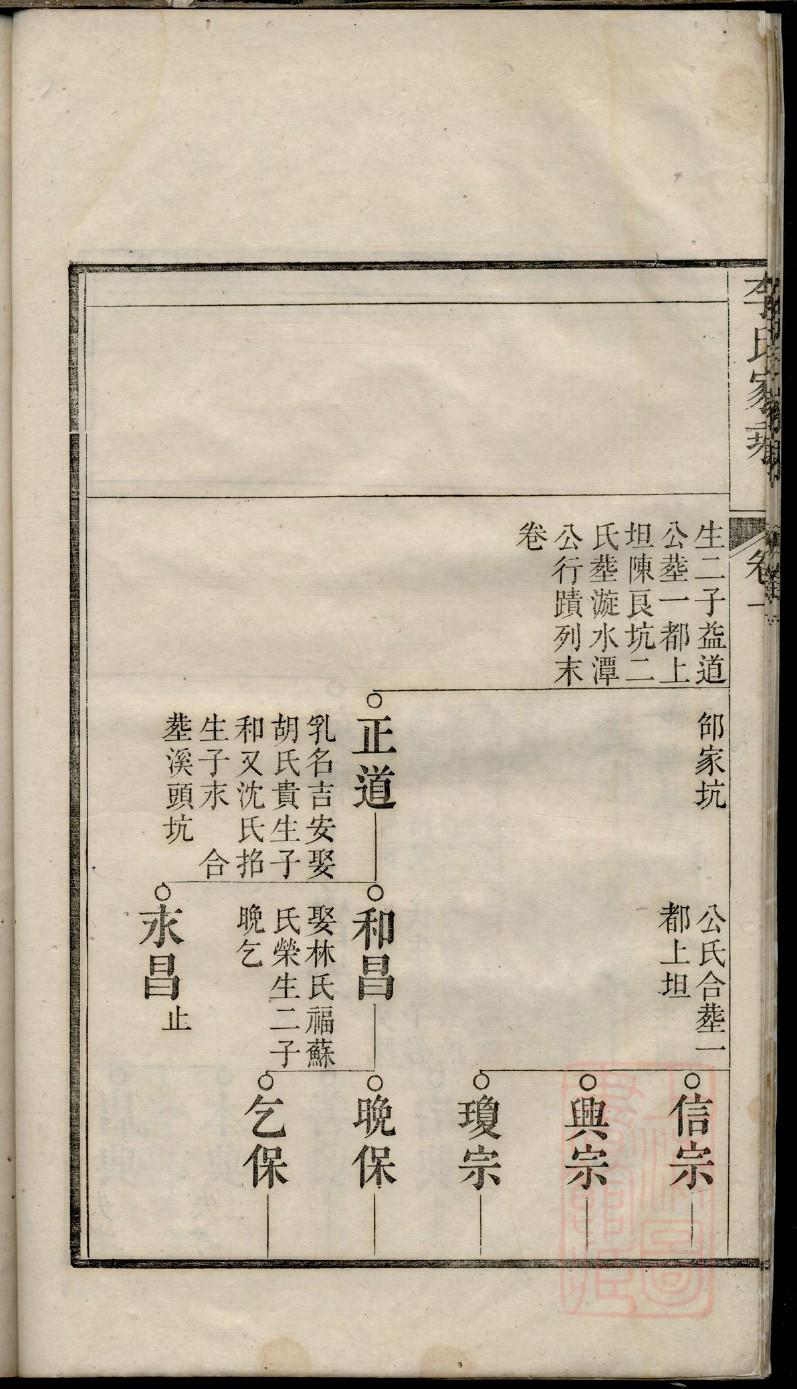 李氏家乘
卷一
生二子益道
公塟一都上
坦陳良坑二
氏塟漩水潭
公行蹟列末
卷
邰家坑
公氏合塟一
都上坦
信宗
興宗
瓊宗
正道
乳名吉安娶
胡氏貴生子
和又沈氏招
生子永　合
塟溪頭坑
和昌
娶林氏福蘇
氏榮生二子
晚乞
晚保
乞保
永昌
止